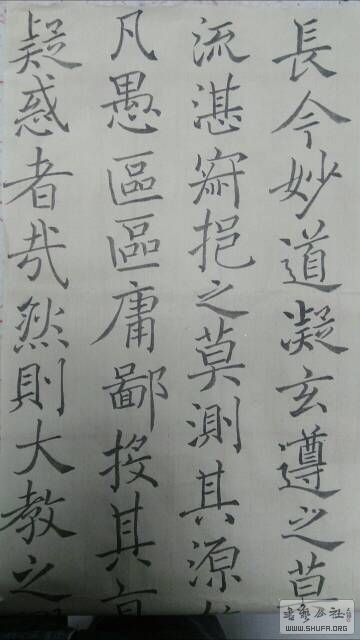 長今妙道凝玄遵之莫
流湛寂挹之莫測其源
凡愚區區庸鄙投其
疑惑者哉然則大教之
书艺公社
WWW.SHUFA.ORG